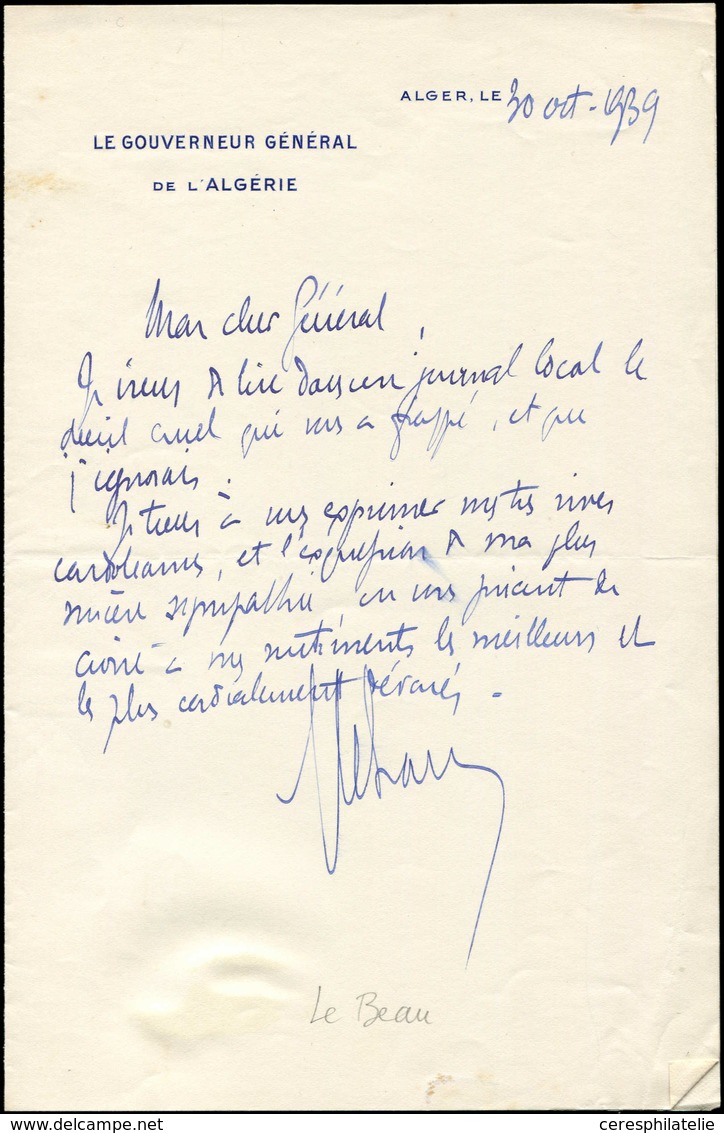 ALGER, LE 30 oct. 1939
LE GOUVERNEUR GÉNÉRAL
DE L'ALGÉRIE
Mon cher Général,
Je viens de lire dans un journal local le
deuil cruel qui vous a frappé, et que
j'ignorais.
Je tiens à vous exprimer mes très vives
condoléances, et l'expression de ma plus
sincère sympathie en vous priant de
croire à mes sentiments les meilleurs et
les plus cordialement dévoués.
Le Beau
Le Beau
ceresphilatelie